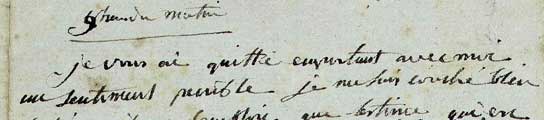 9 heures du matin
je vous ai quitté emportant avec moi
un sentiment penible je me suis couché bien
que